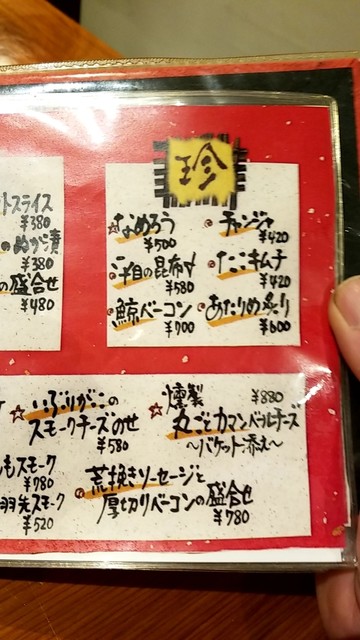 珍
なめろう
¥500
チャンジャ
¥420
平目の昆布〆
¥580
たこキムチ
¥420
鯨ベーコン
¥700
あたりめ炙り
¥600
トスライス
¥380
のぬか漬
¥380
の盛合せ
¥480
いぶりがっこの
スモークチーズのせ
¥580
燻製 ¥880
丸ごとカマンベールチーズ
〜バケット添え〜
もスモーク
¥780
羽先スモーク
¥520
荒挽きソーセージと
厚切りベーコンの盛合せ
¥780